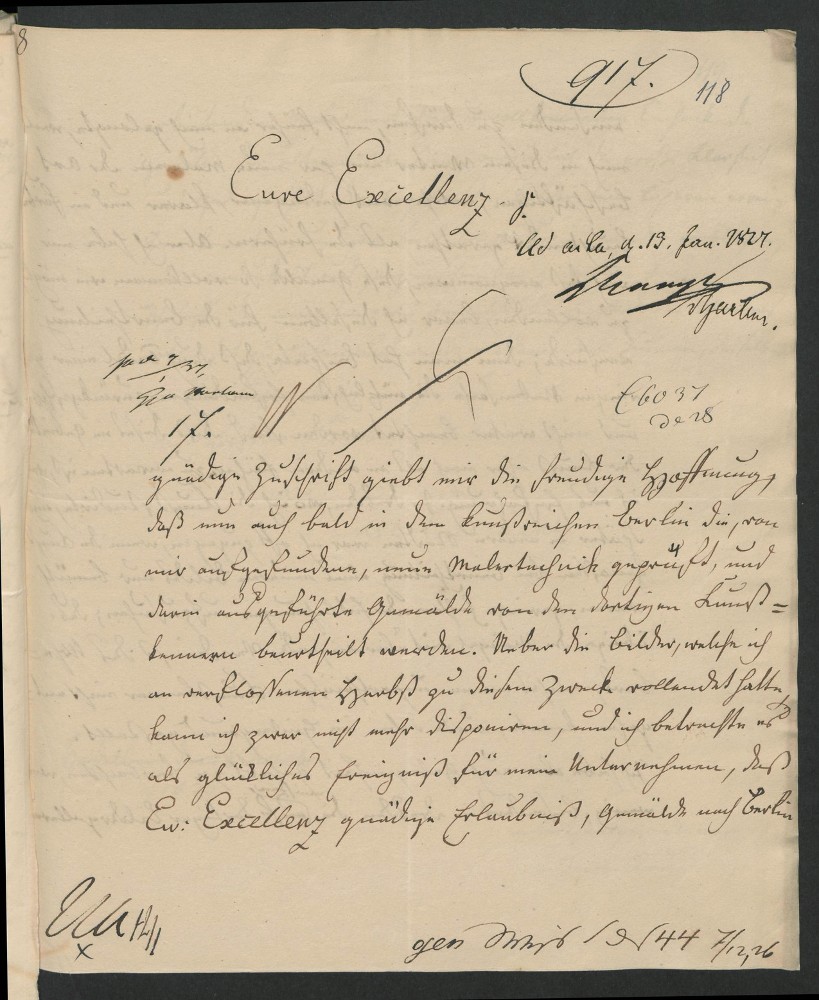 8
917.
118
Eure Excellenz
Ad acta, d. 13. Jan. 1827.
17.
E 6037
de 28
gnädige Zuschrift giebt mir die freudige Hoffnung,
daß nun auch bald in dem kunstreichen Berlin die, von
mir aufgefundene, neue Malertechnik geprüft, und
darin ausgeführte Gemälde von den dortigen Kunst=
kennern beurtheilt werden. Ueber die Bilder, welche ich
im verflossenen Herbst zu diesem Zwecke vollendet hatte,
kann ich zwar nicht mehr disponiren, und ich betrachte es
als glückliches Ereigniß für mein Unternehmen, daß
Ew: Excellenz gnädige Erlaubniß, Gemälde nach Berlin